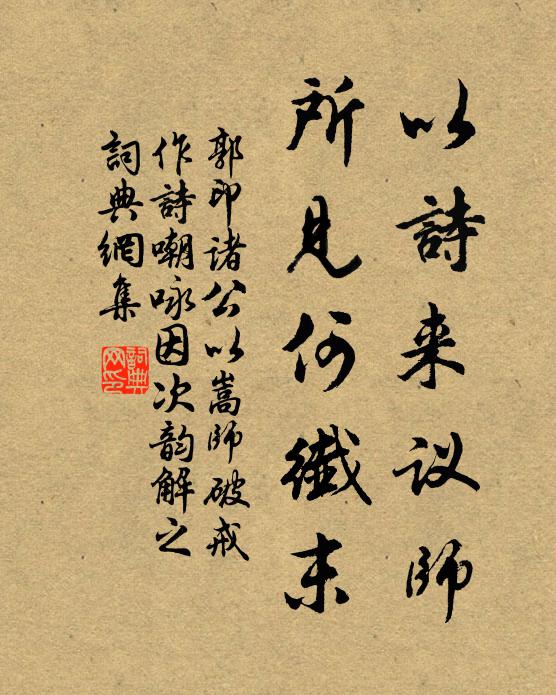 以詩来议師
所見何纎末
郭印诸公以嵩師破戒
作詩嘲咏因次韵解之
詞典網集
詞典
网印